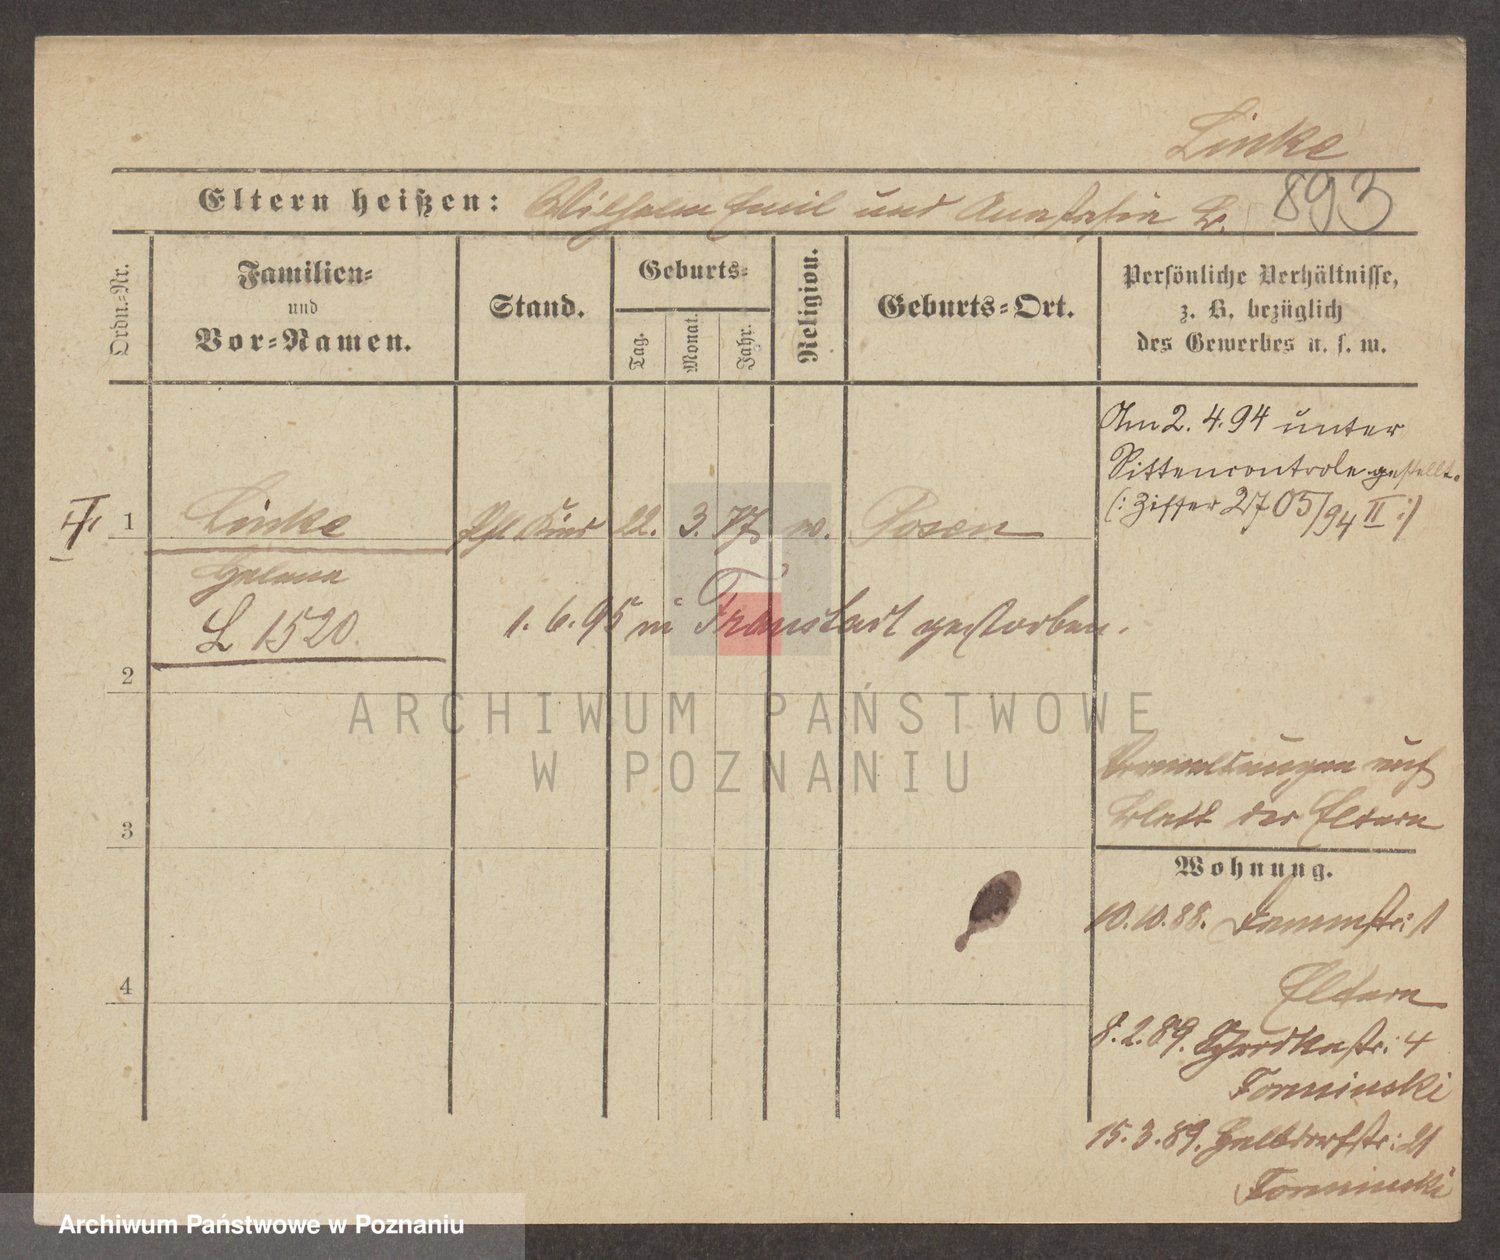 Linke
893
Eltern heißen: Wilhelm Emil und Anastasia
Ordn.-Nr.
Familien-
und
Vor-Namen.
Stand.
Geburts-
Tag.
Monat.
Jahr.
Religion.
Geburts-Ort.
Persönliche Verhältnisse,
z. B. bezüglich
des Gewerbes u. s. w.
Am 2. 4. 94 unter
Sittencontrole gestellt.
(: Ziffer 2705/94 II :)
1 Linke 22. 3. 77 Posen
Helene
L 1520
1. 6. 95 in Fraustadt gestorben.
2
3
4
ARCHIWUM PAŃSTWOWE
W POZNANIU
auf
Blatt der Eltern
Wohnung.
10. 10. 88. Dammstr: 1
Eltern
8. 2. 89. Schrodkastr: 4
Tominski
15. 3. 89. Halbdorfstr: 21
Tominski
Archiwum Państwowe w Poznaniu